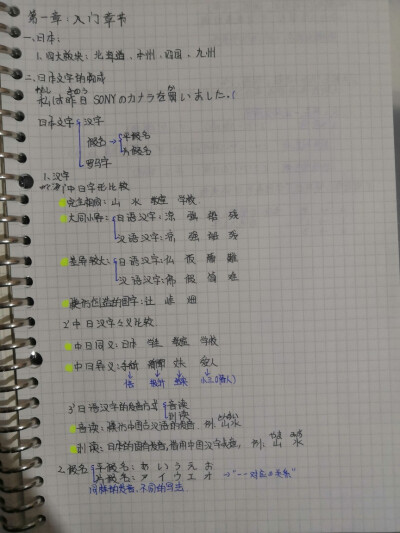 第一章:入门章节
一、日本:
1.四大板块:北海道、本州、四国、九州
二、日本文字的构成
わたし きのう か
私は昨日SONYのカメラを買いました。
日本文字 汉字
假名→平假名
片假名
罗马字
1.汉字
1'中日字形比较
完全相同:山 水 教室 学校
大同小异:日语汉字:涼 強
汉语汉字:凉 强
差异较大:日语汉字:仏 仮 難
汉语汉字:佛 假 难
模仿创造的国字:辻 峠 畑
2'中日汉字含义比较
中日同义:日本 学生 教室 学校
中日异义:手紙 丈夫 愛人
信 结实 小三(情人)
3'日语汉字的发音方式 音读
训读
音读:模仿中国古汉语的发音 例:山水
训读:日本的固有发音,借用中国汉字表意, 例:山 水
やま みず
2.假名 平假名:あ い う え お
片假名:ア イ ウ エ オ →"一一对应の关系"
同样的发音,不同的写法